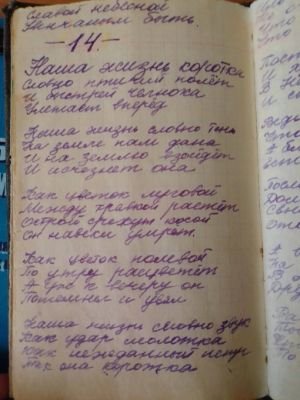 Славой небесной
Увенчанным быть.
— 14. —
Наша жизнь коротка
Словно птичий полёт
И быстрей челнока
Улетает вперёд
Наша жизнь словно тень
На земле нам дана
И на землю взойдёт
И исчезнет она
Как цветок луговой
Между травкой растёт
Острой срежут косой
Он навеки умрёт.
Как цветок полевой
По утру расцветёт
А уж к вечеру он
Потемнел и увял
Наша жизнь словно звук
Как удар молотка
Как нежданный испуг
Так она коротка